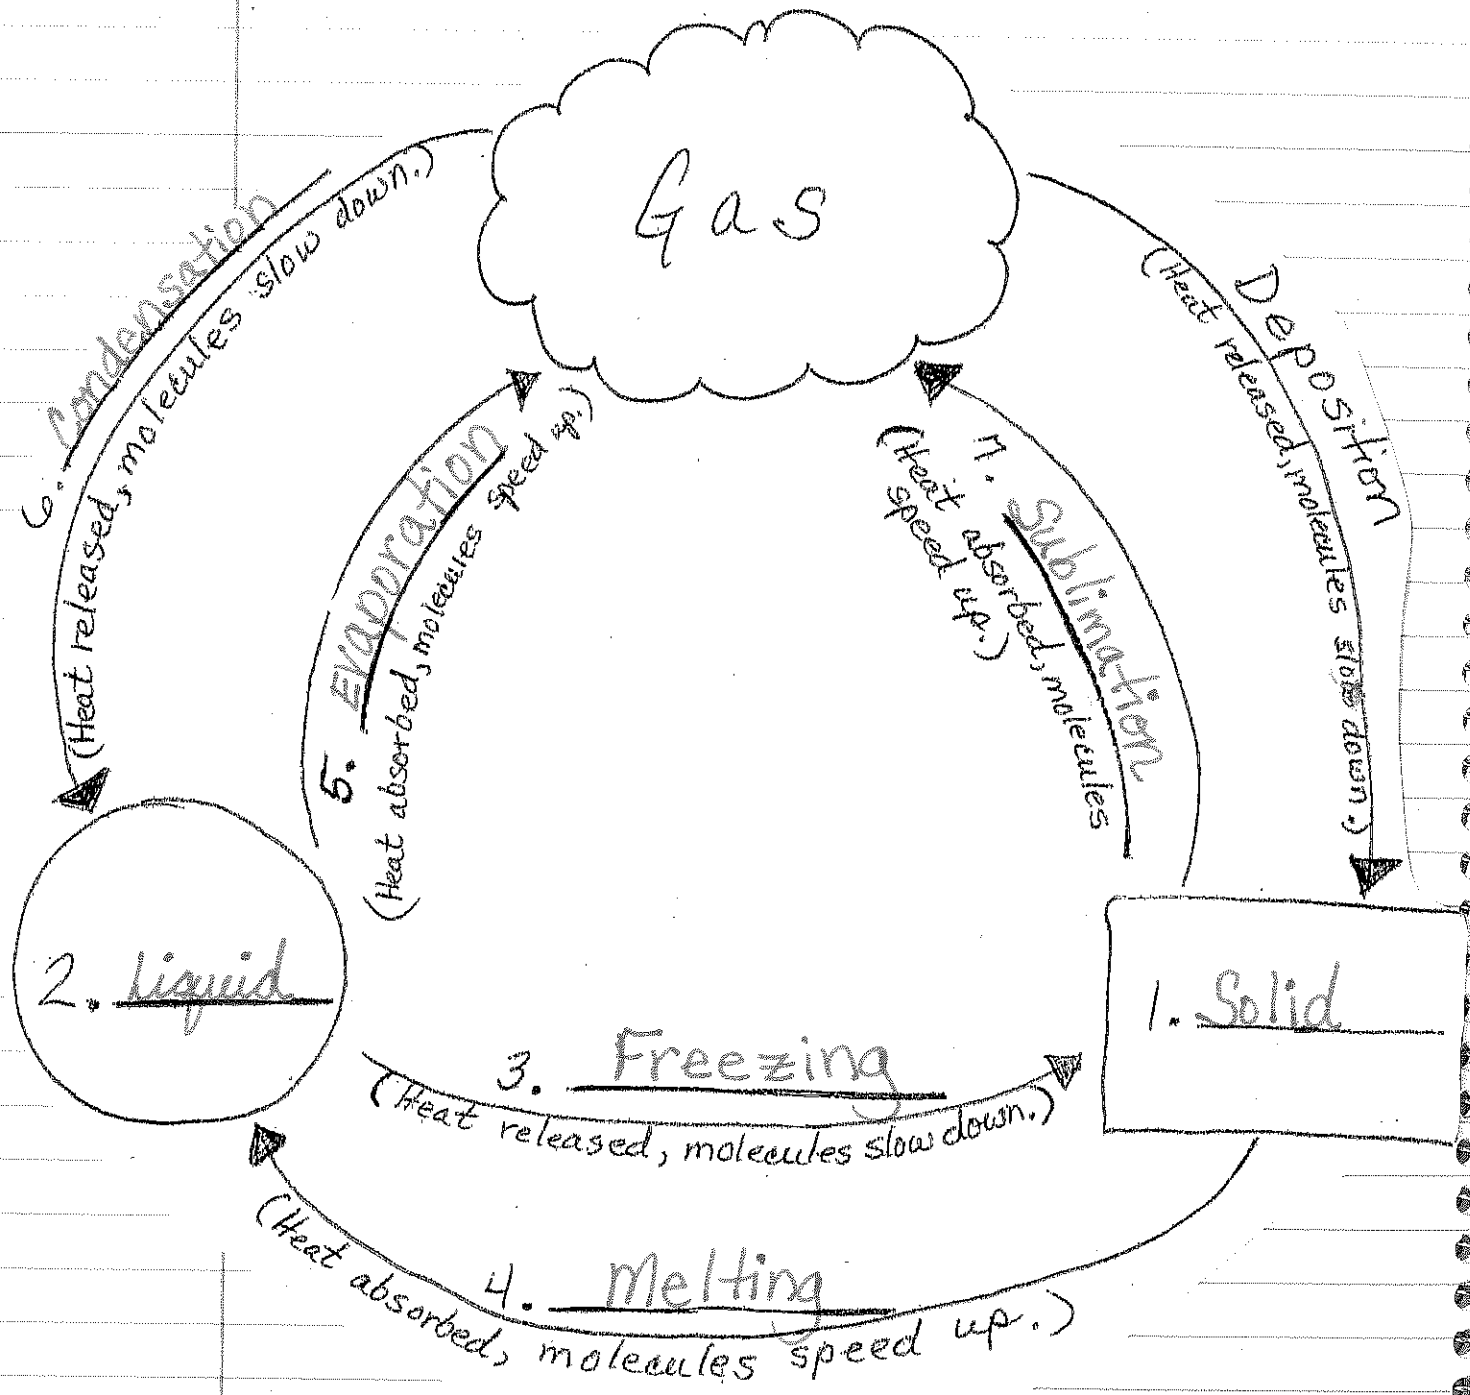 Gas
6. Condensation
(Heat released, molecules slow down.)
5. Evaporation
(Heat absorbed, molecules speed up.)
7. Sublimation
(Heat absorbed, molecules
speed up.)
Deposition
(Heat released, molecules slow down.)
2. Liquid
1. Solid
3. Freezing
(Heat released, molecules slow down.)
4. Melting
(Heat absorbed, molecules speed up.)